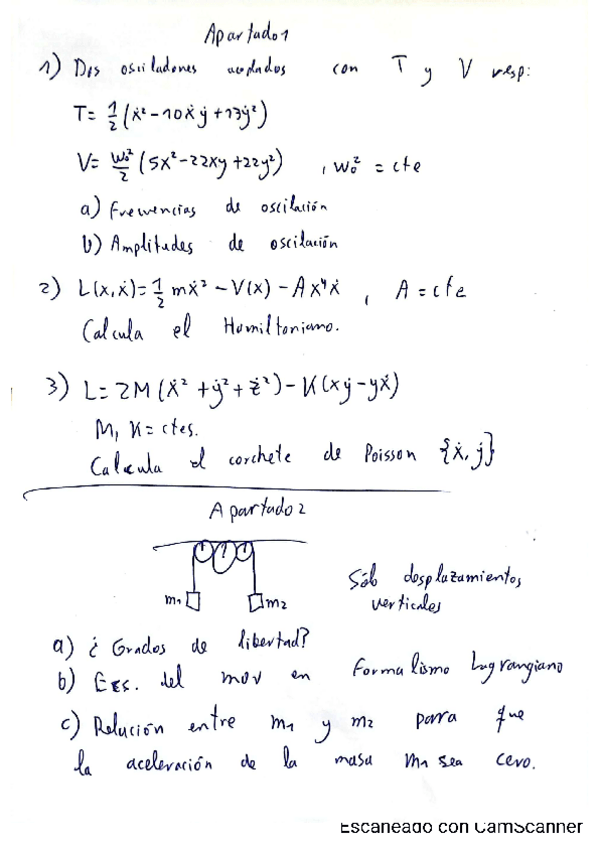 Apartado 1
1) Dos osciladores acoplados con T y V resp:
T= 1/2 (ẋ² - 10ẋẏ + 13ẏ²)
V= ω₀²/2 (5x² - 22xy + 22y²) , ω₀² = cte
a) Frecuencias de oscilación
b) Amplitudes de oscilación
2) L(x,ẋ)= 1/2 mẋ² - V(x) - Ax⁴ẋ , A = cte
Calcula el Hamiltoniano.
3) L= 2M (ẋ² + ẏ² + ż²) - K(xẏ - yẋ)
M, K = ctes.
Calcula el corchete de Poisson {ẋ, ẏ}
Apartado 2
m₁ m₂
Sólo desplazamientos
verticales
a) ¿Grados de libertad?
b) Ecs. del mov en Formalismo Lagrangiano
c) Relación entre m₁ y m₂ para que
la aceleración de la masa m₁ sea cero.
Escaneado con CamScanner